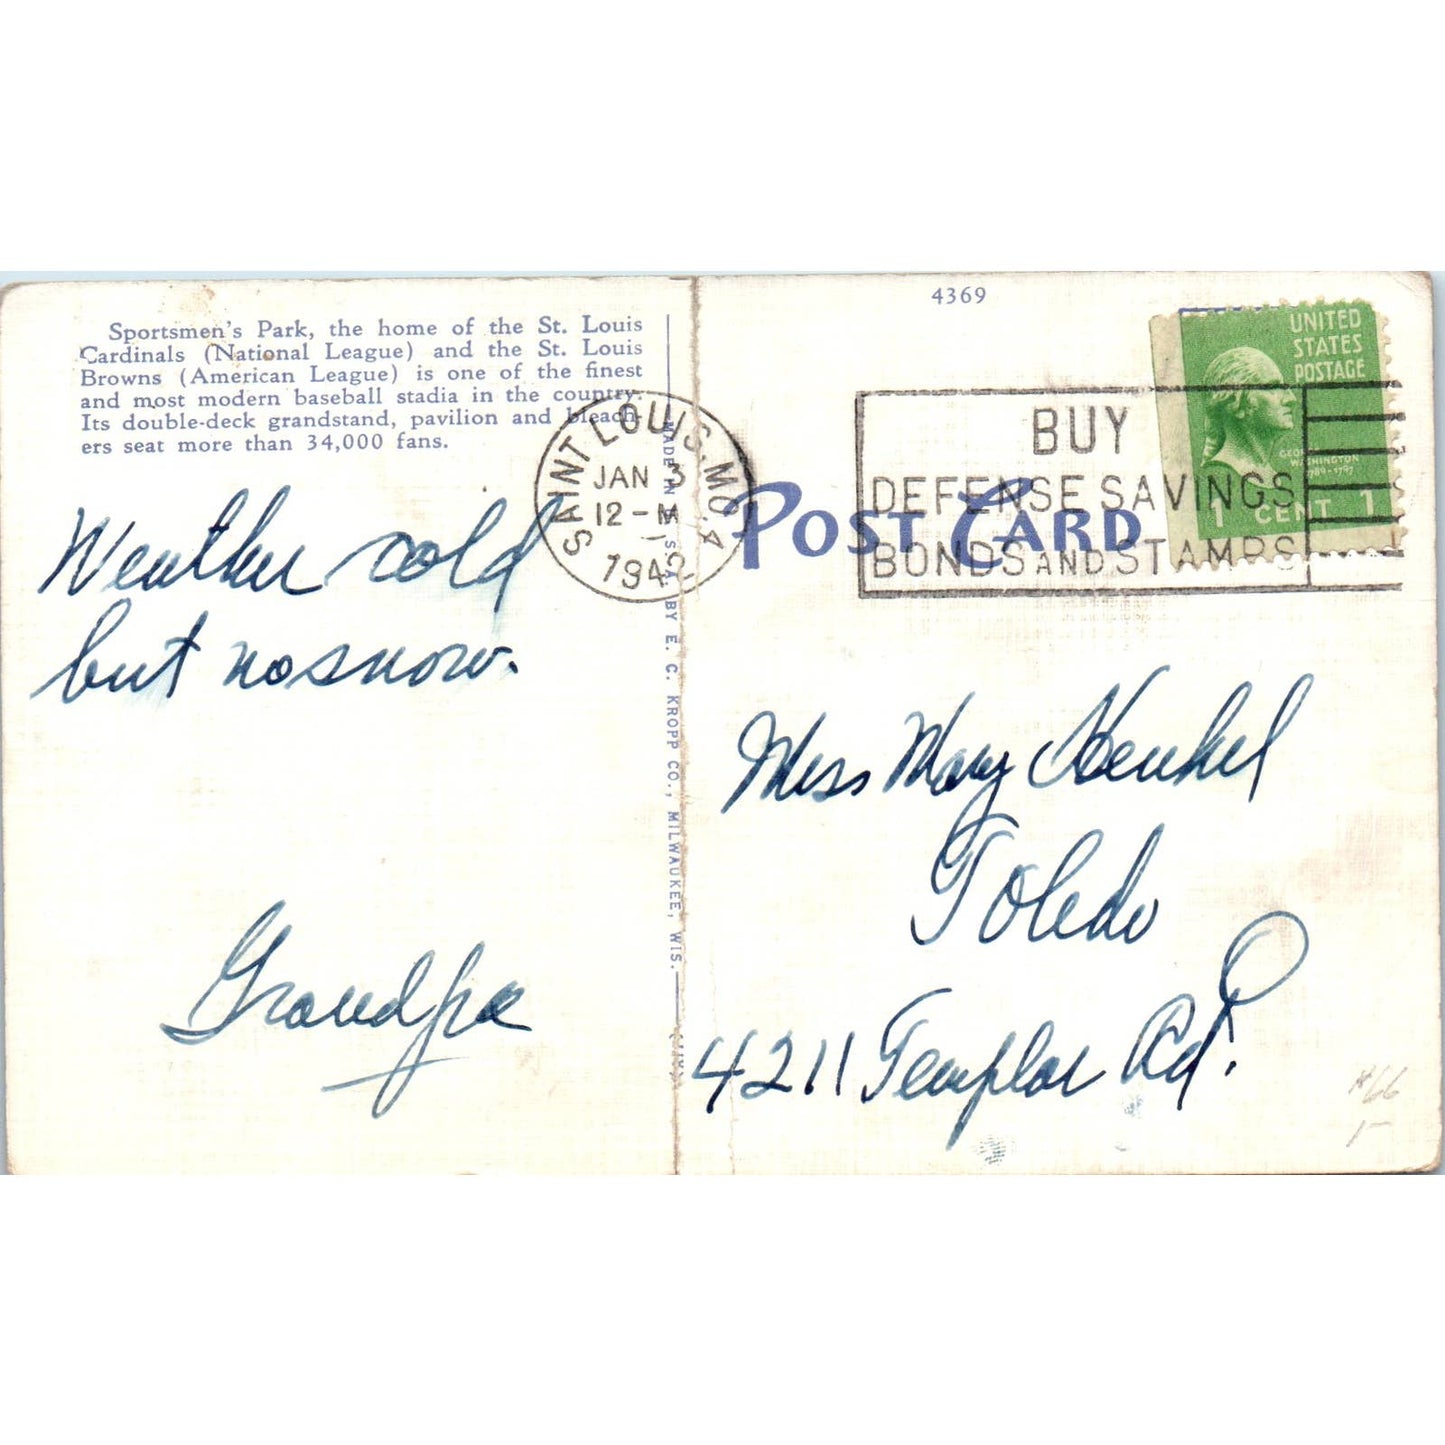 Sportsmen's Park, the home of the St. Louis
Cardinals (National League) and the St. Louis
Browns (American League) is one of the finest
and most modern baseball stadia in the country.
Its double-deck grandstand, pavilion and bleach-
ers seat more than 34,000 fans.
Weather cold
but no snow.
Grandpa
MADE IN U.S.A. BY E. C. KROPP CO., MILWAUKEE, WIS.
4369
POST CARD
SAINT LOUIS, MO. 4
JAN 3
12-M
1942
BUY
DEFENSE SAVINGS
BONDS AND STAMPS
UNITED
STATES
POSTAGE
GEORGE
WASHINGTON
1789-1797
1 CENT 1
Miss Mary Henkel
Toledo
O
4211 Templar Rd.